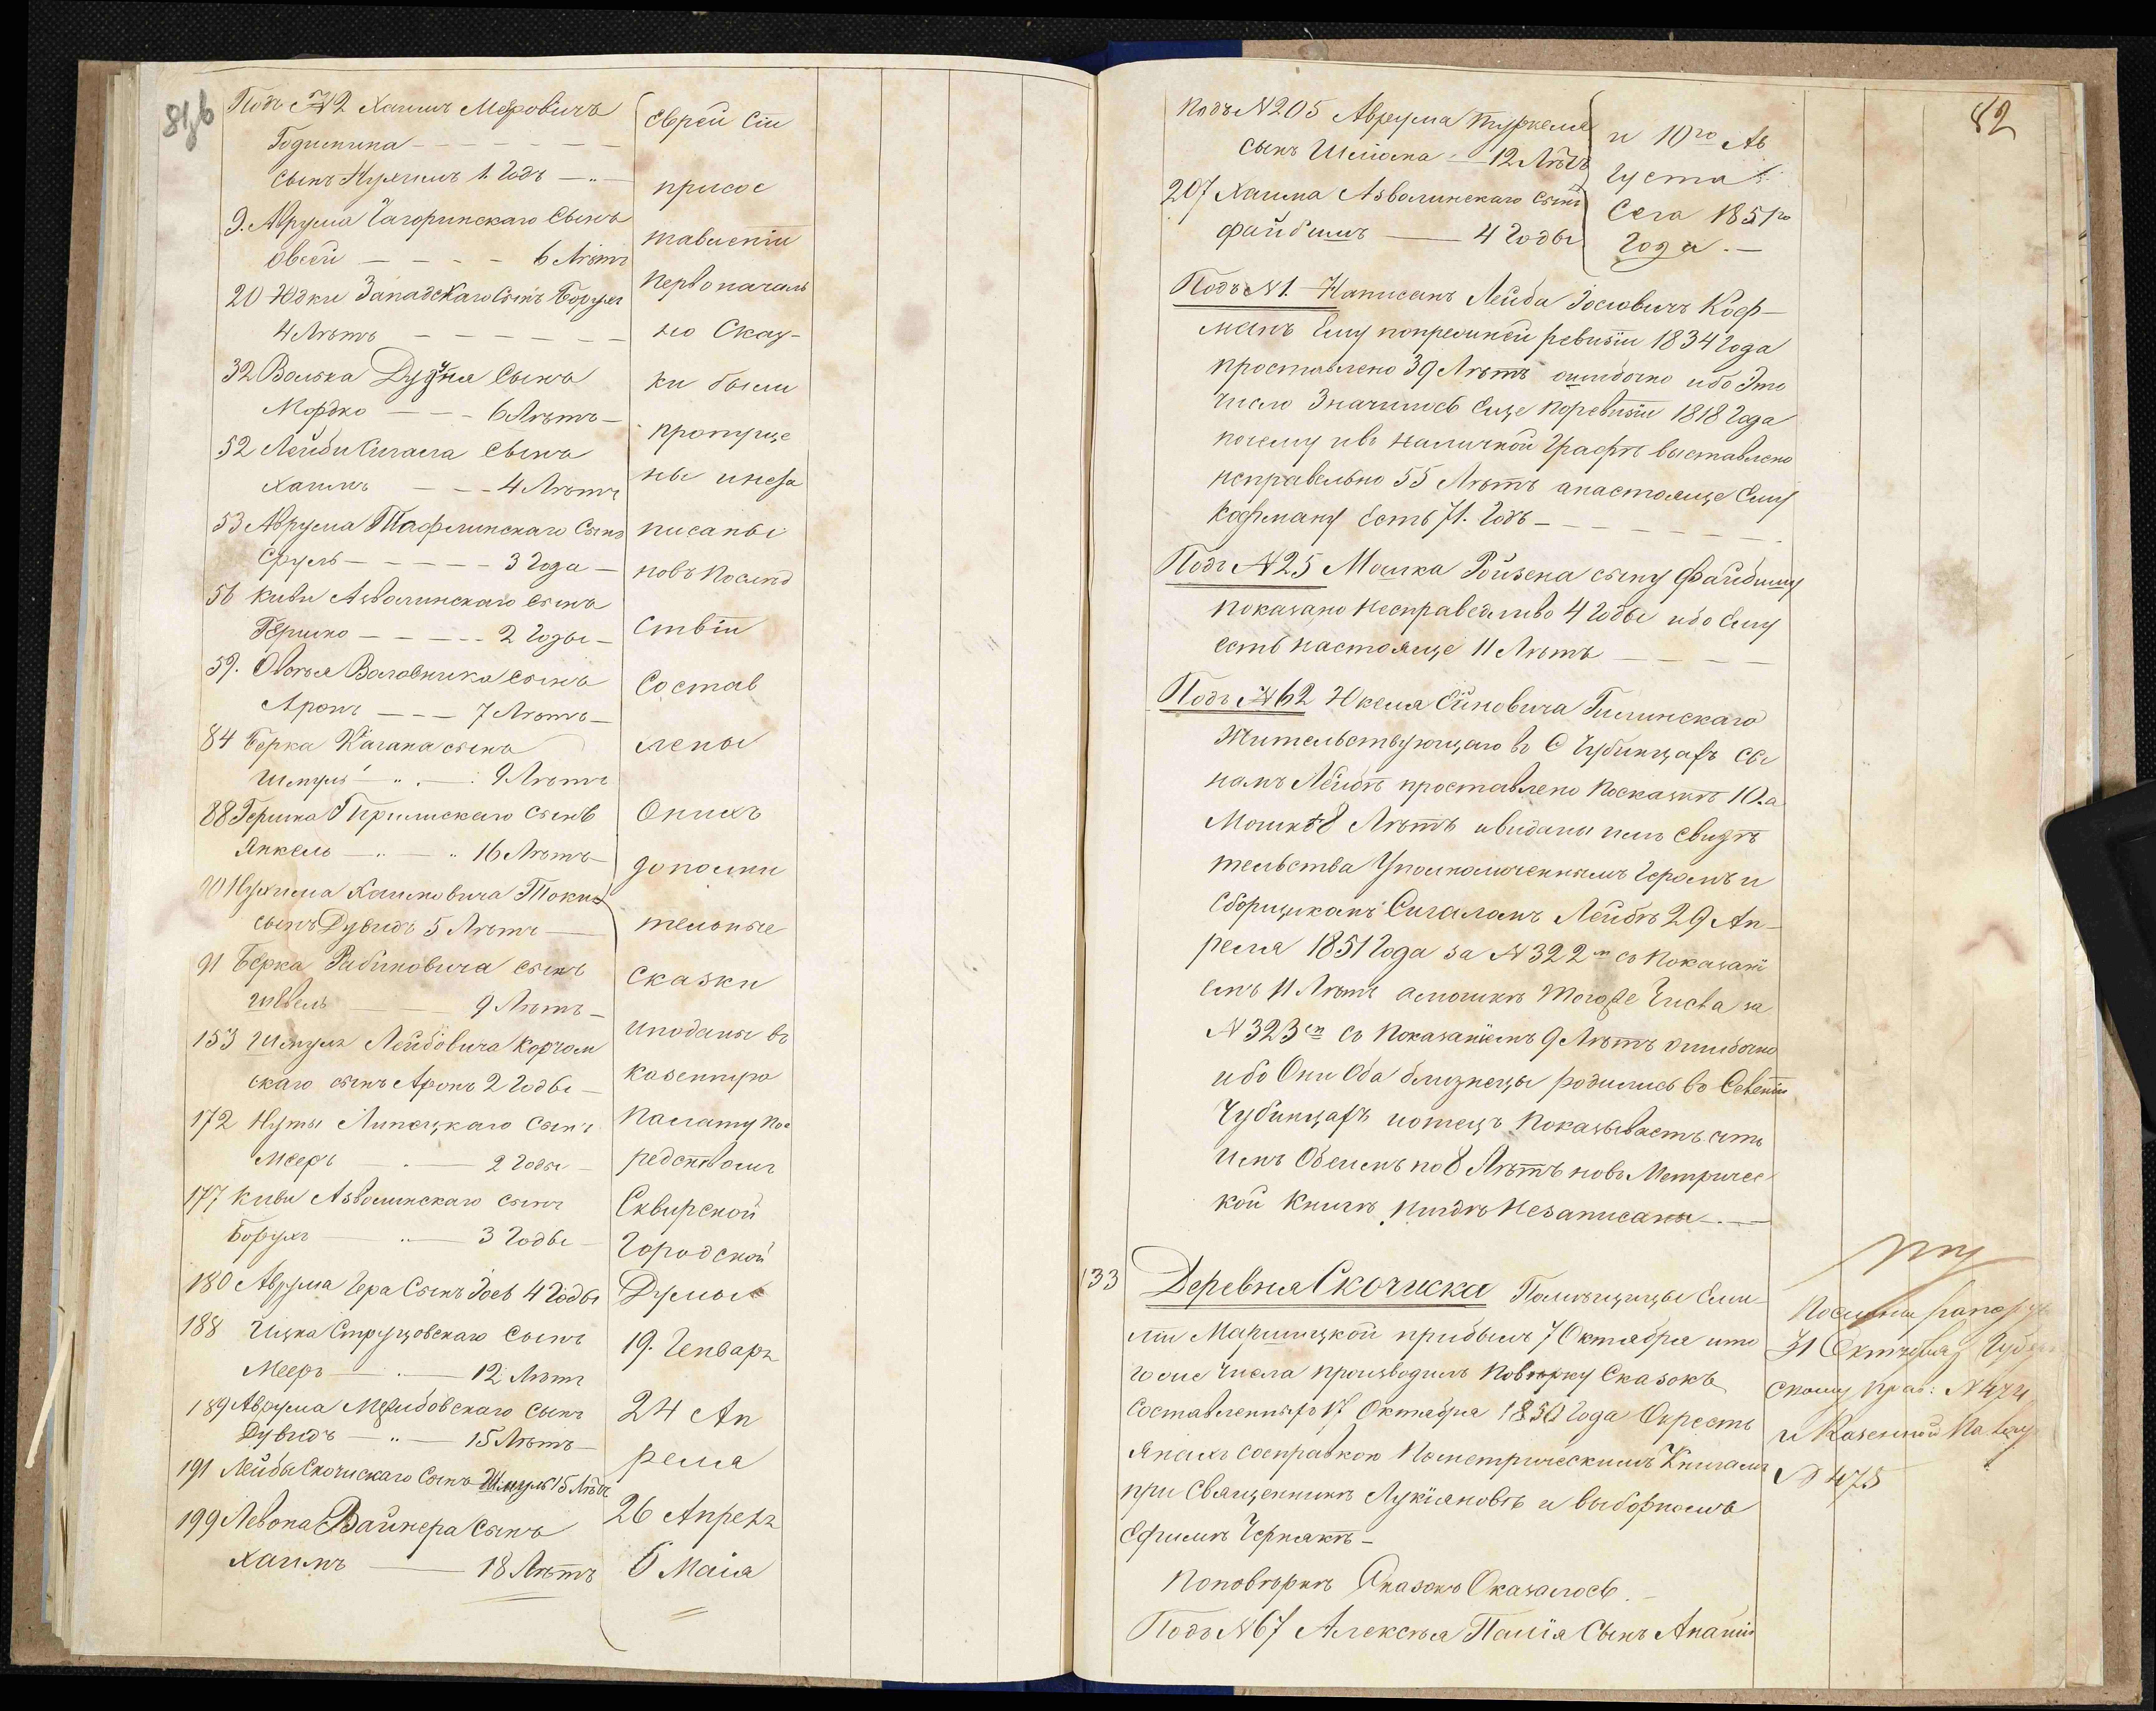 81 б
Подъ №2 Хаимъ Меѳровичъ
Годинина
сынъ Нухимъ 1 Годъ
9. Аврума Чагоринскаго Сынъ
Овсей 6 Лѣтъ
20 Юдки Западскаго Сынъ Борухъ
4 Лѣтъ
32 Волька Сынъ
Мордко 6 Лѣтъ
52 Лейби Сигала Сынъ
Хаимъ 4 Лѣтъ
53 Аврума Сынъ
Сруль 3 Года
56 Киви Азволинскаго сынъ
Гершко 2 Годы
59. Овсѣя Воловника сынъ
Аронъ 7 Лѣтъ
84 Берка Кагана сынъ
Шмуль 9 Лѣтъ
88 Гершка сынъ
Янкель 16 Лѣтъ
90 Нухима Хаимовича
сынъ Дувидъ 5 Лѣтъ
91 Берка Рабиновича сынъ
9 Лѣтъ
153 Шмуля Лейбовича Корчом
скаго сынъ Аронъ 2 Годы
172 Нуты Липецкаго Сынъ
Мееръ 2 Годы
177 Киви Азволинскаго сынъ
Борухъ 3 Годы
180 Аврума Гера Сынъ Іось 4 Годы
188 Ицка Струцовскаго Сынъ
Мееръ 12 Лѣтъ
189 Аврума Сынъ
Дувидъ 15 Лѣтъ
191 Лейбы Скочискаго Сынъ Шмуль 15 Лѣтъ
199 Левона Вайнера Сынъ
Хаимъ 18 Лѣтъ
Еврей Сіи
присос
тавленіи
первоначаль
но Сказ-
ки были
пропуще
ны ineза
писаны
новъ послѣд
ствіи
Состав
лены
Онихъ
дополни
тельные
сказки
иподаны въ
казенную
Палату пос
редствомъ
Сквирской
Городской
Думы
19. Генваря
24 Ап
реля
26 Апреля
6 Маія
82
Подъ №205 Аврума Туркеля
сынъ Шлiома 12 Лѣтъ
207 Хаима Азволинскаго Сынъ
Файбишъ 4 Годы
и 10го Ав
густа
Сего 1851го
Года.
Подъ №1. Написанъ Лейба Іосіовичъ Коф-
манъ Ему попрежней ревизіи 1834 Года
проставлено 39 Лѣтъ ошибочно ибо Это
число Значилось Еще поревизіи 1818 Года
почему ивъ наличной Графѣ выставлено
неправельно 55 Лѣтъ анастояще Ему
Кофману Есть 71. Годъ
Подъ №25 Мошка Ройзена сыну Файбишу
показано несправедливо 4 Годы ибо Ему
есть настояще 11 Лѣтъ
Подъ №62 Юкеля Ейновича
Жительствующаго въ С Чубинцахъ Сы
намъ Лейбѣ проставлено поскаскѣ 10. а
Мошкѣ 8 Лѣтъ ивидани имъ свидѣ
тельства Уполномоченнымъ Геромъ и
Сборщикомъ Сигаломъ Лейбѣ 29 Ап-
реля 1851 Года за №322м со показані
емъ 11 Лѣтъ амошкѣ тогоже Числа за
№323ем со показаніемъ 9 Лѣтъ ошибочно
ибо Они Оба близнецы родились въ Селеніи
Чубинцахъ иотецъ показываетъ что
имъ Обеимъ по 8 Лѣтъ новъ Метричес
кой Книгѣ нигдѣ незаписаны
133 Деревня Скочиска Помѣщицы Еми-
ліи прибылъ 7 Октября ито
гоже Числа производилъ повѣрку Сказокъ
Составленныхъ 17 Октября 1850 Года Окресть
янахъ соправкою пометрическимъ Книгамъ
при Священникѣ Лукіановѣ и выборномъ
Ефимѣ Чернякѣ
Поповѣркѣ Сказокъ Оказалось.
Подъ №67 Алексѣя Палія Сынъ Ананій
31 Октября
№474
и Казенной Палату
№475